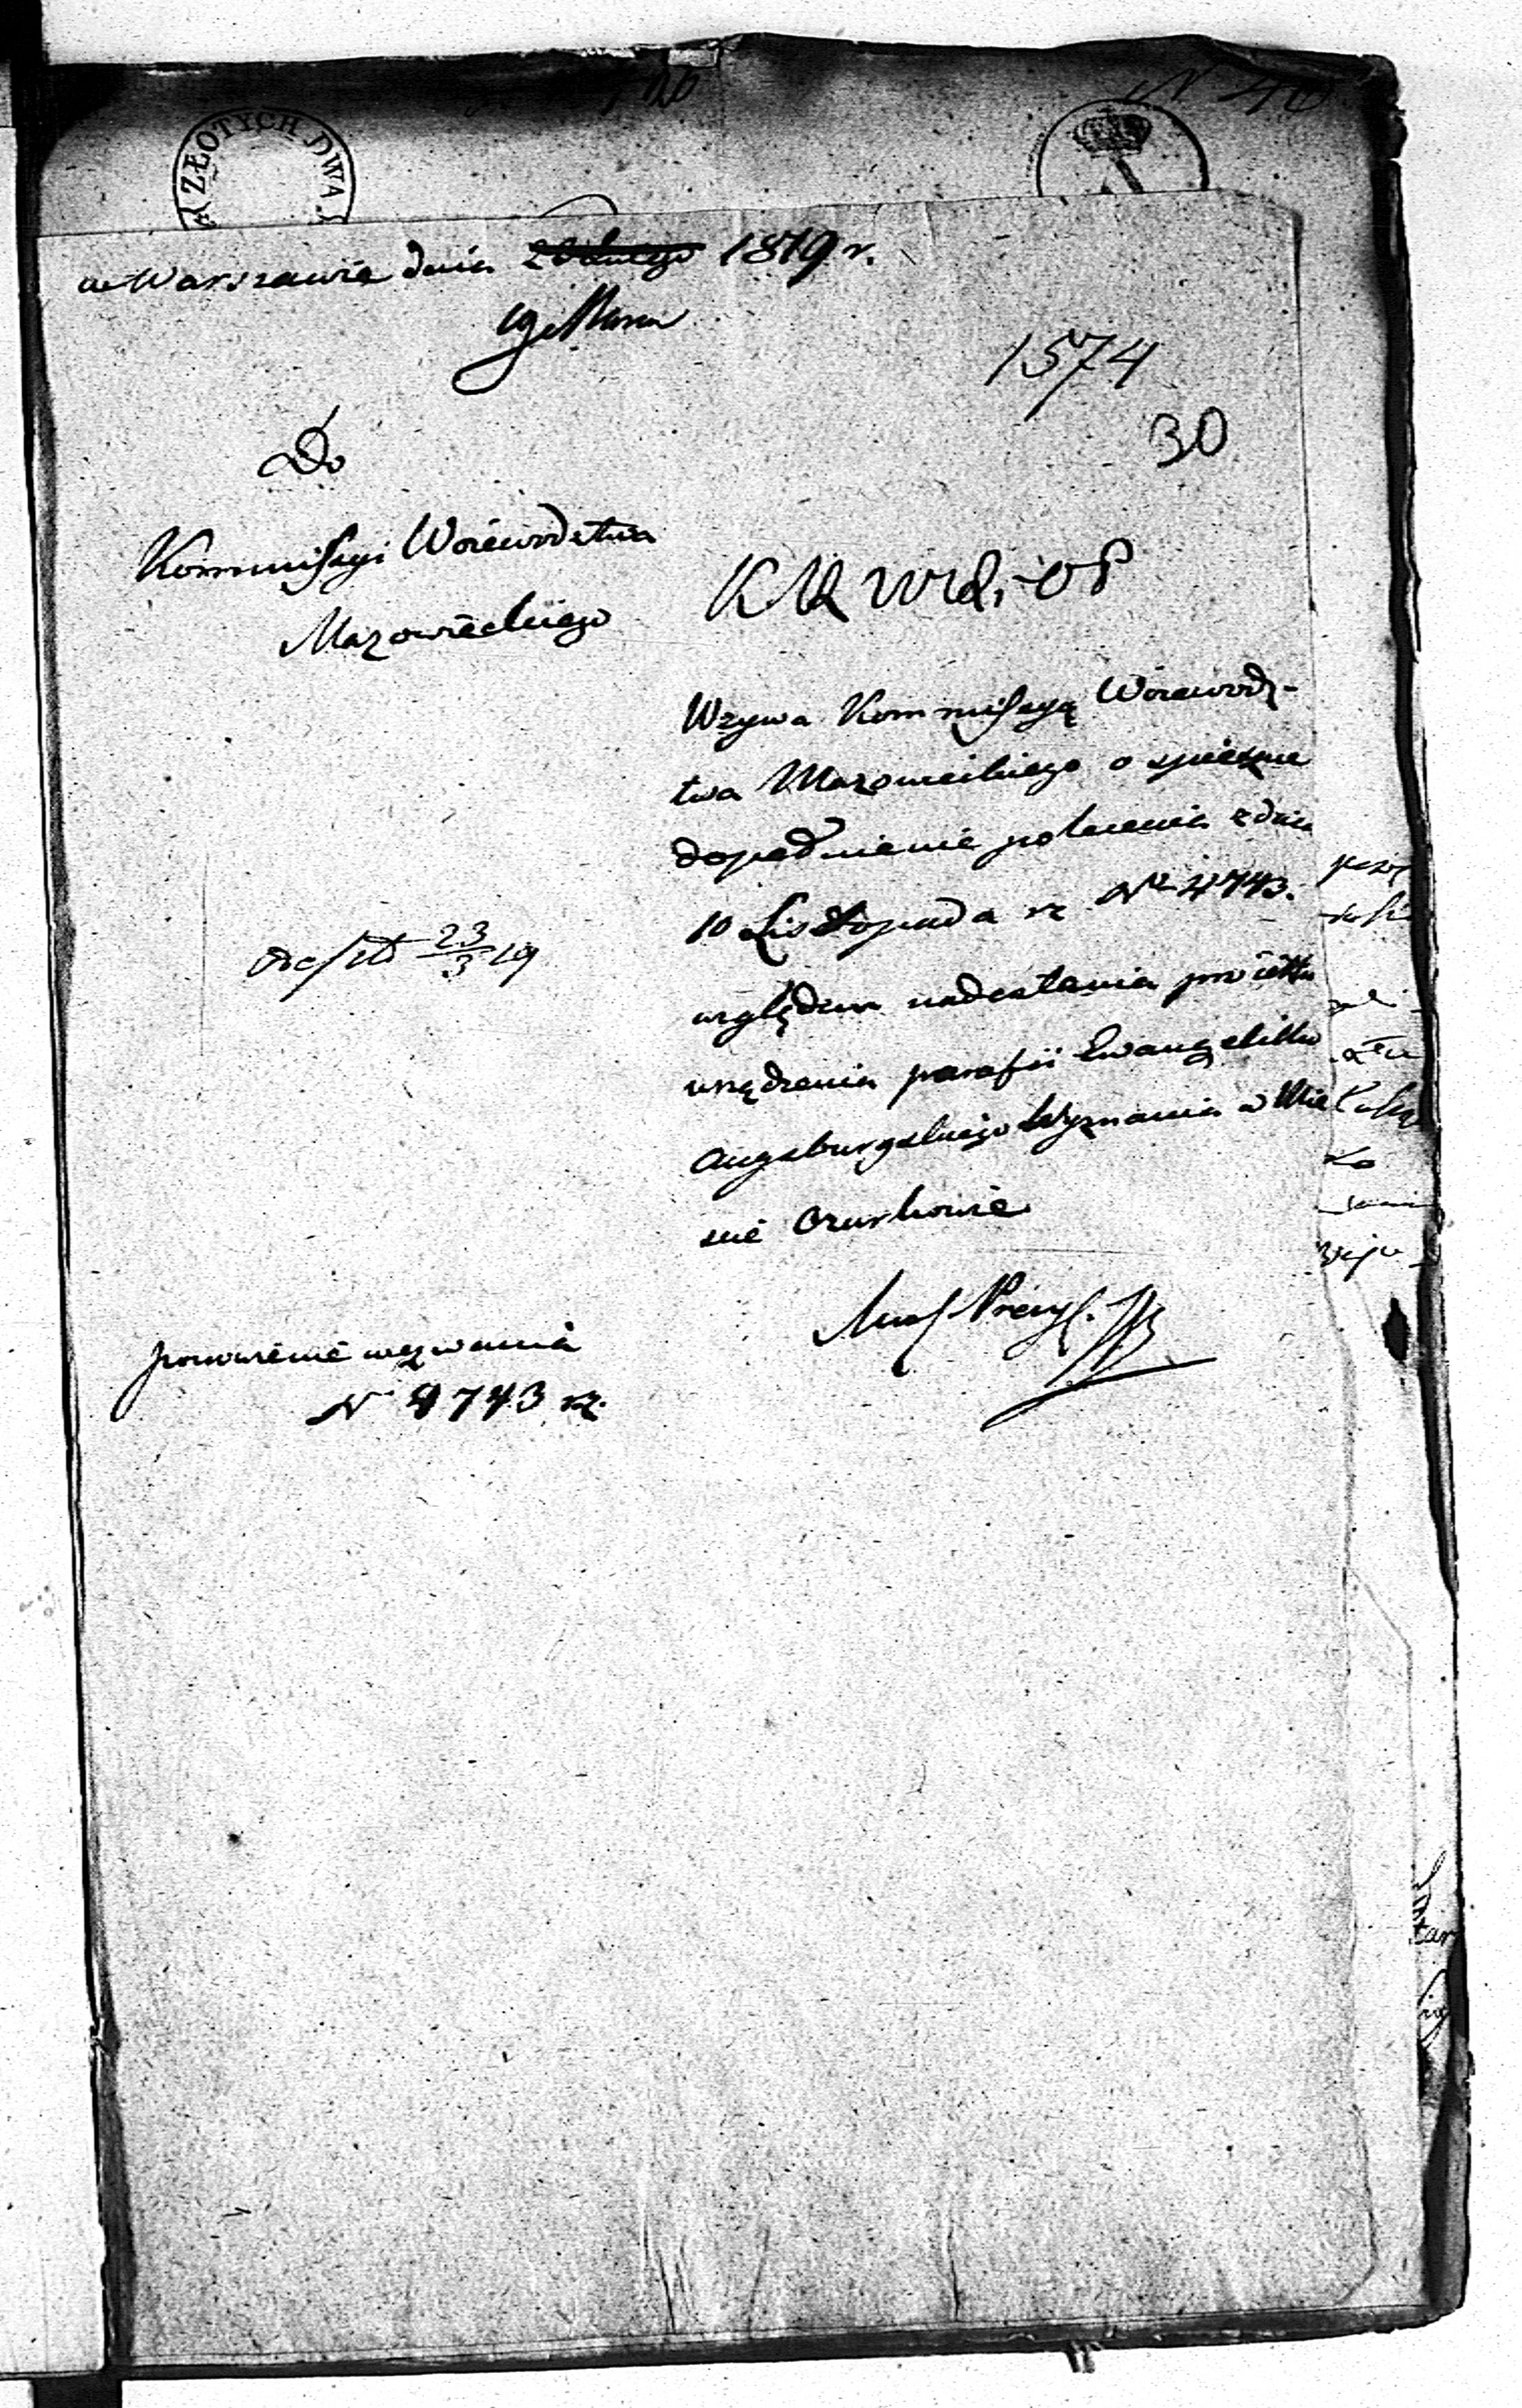 ZŁOTYCH DWA
w Warszawie dnia 20 Lutego 1819 r.
19 Marca
1574
30
Do
Kommissyi Woiewodztwa
Mazowieckiego
K R W R i O P
Wzywa Kommissyą Woiewodz-
twa Mazowieckiego o spieszne
dopełnienie polecenia z dnia
10 Listopada rz No 4743.
względem nadesłania proiektu
urządzenia parafii Ewangelicko
Augsburgskiego Wyznania w Mie
scie Ozorkowie
23/3 19
ponowienie wezwania
N 4743 rz.